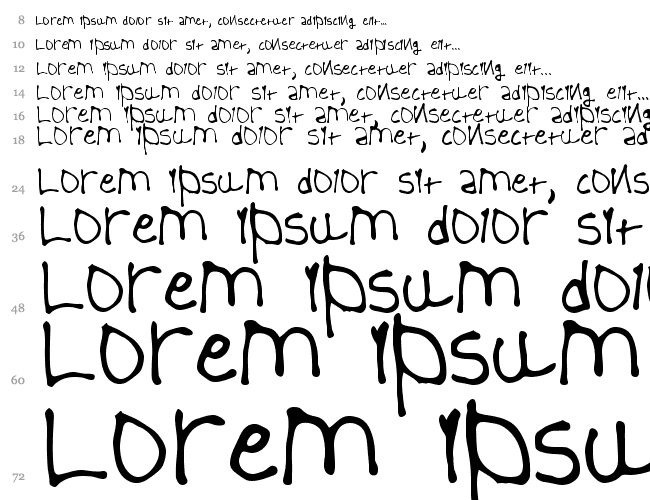 8 Lorem ipsum dolor sit amet, consectetuer adipiscing elit...
10 Lorem ipsum dolor sit amet, consectetuer adipiscing elit...
12 Lorem ipsum dolor sit amet, consectetuer adipiscing elit...
14 Lorem ipsum dolor sit amet, consectetuer adipiscing elit...
16 Lorem ipsum dolor sit amet, consectetuer adipiscing
18 Lorem ipsum dolor sit amet, consectetuer ad
24 Lorem ipsum dolor sit amet, cons
36 Lorem ipsum dolor sit
48 Lorem ipsum dol
60 Lorem ipsum
72 Lorem ipsu